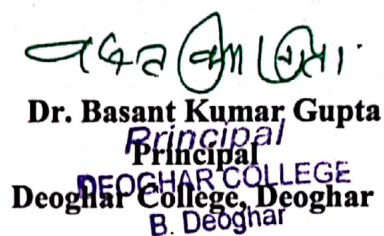 Dr. Basant Kumar Gupta
Principal
Principal
DEOGHAR COLLEGE
Deoghar College, Deoghar
B. Deoghar